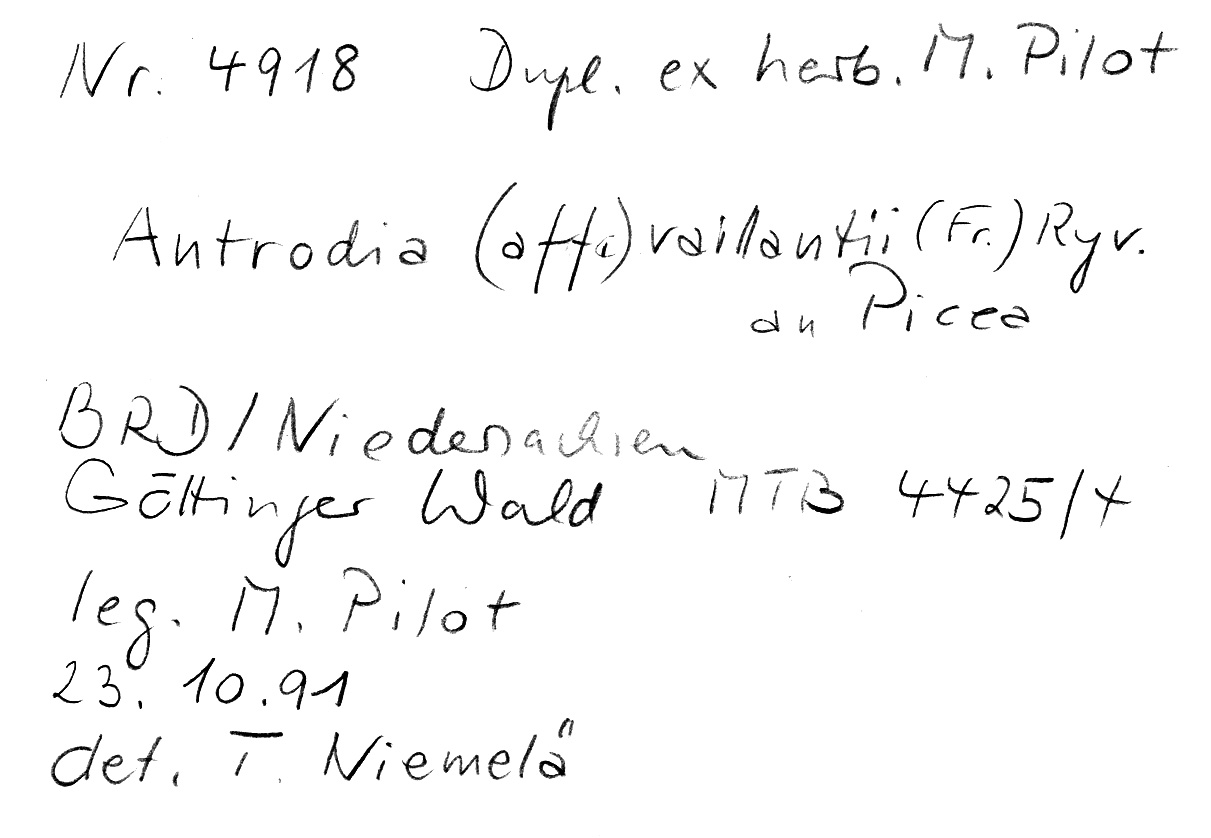 Nr. 4918 Dupl. ex herb. M. Pilot
Antrodia (aff.) vaillantii (Fr.) Ryv.
an Picea
BRD / Niedersachsen
Göttinger Wald MTB 4425/4
leg. M. Pilot
23. 10. 91
det. T. Niemelä